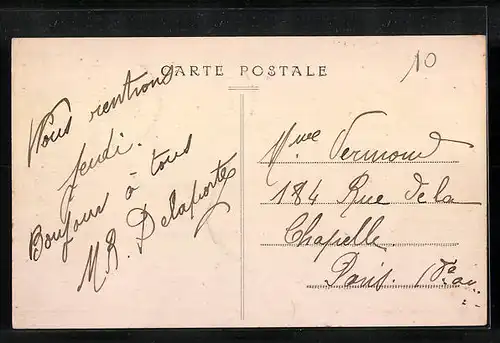 CARTE POSTALE
10
Nous rentrons
Jeudi.
Bonjour à tous
M R. Delaporte
Mme Vermond
184 Rue de la
Chapelle
Paris.